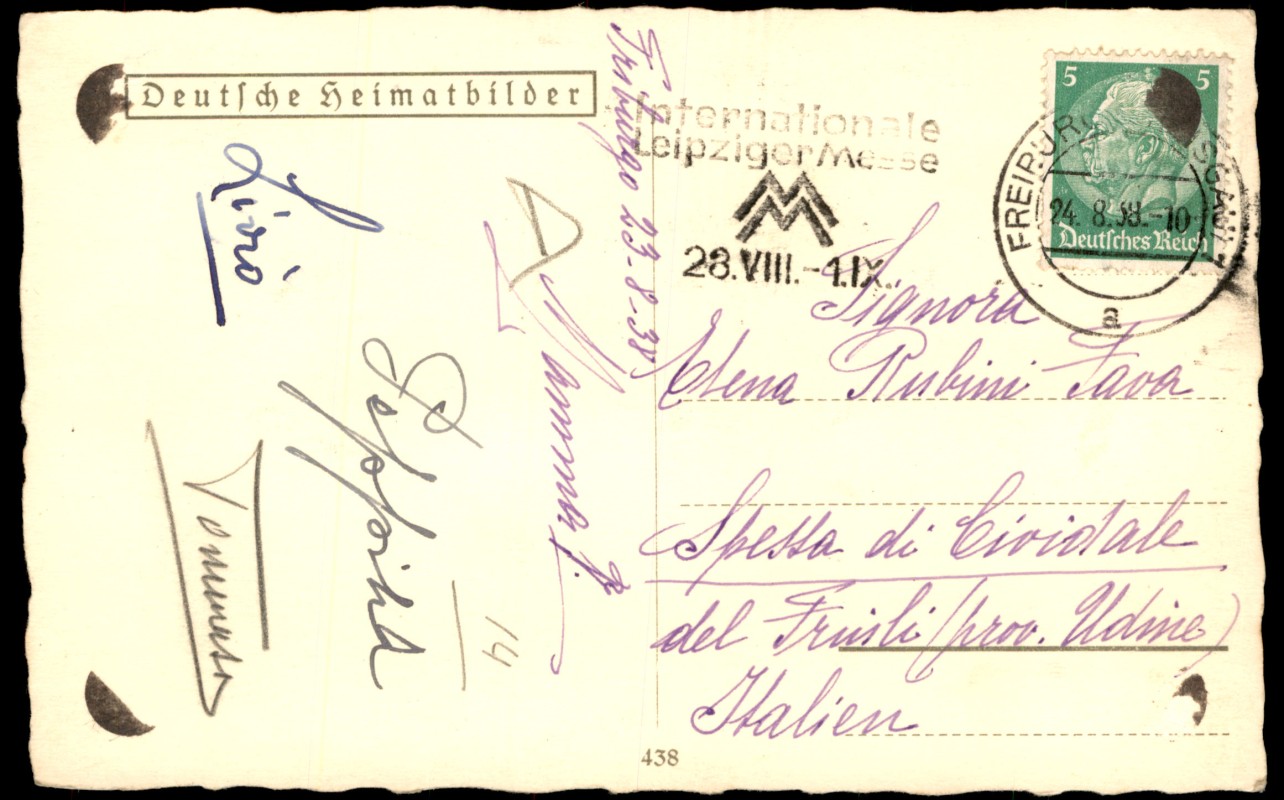 Deutsche Heimatbilder
Friburgo 23-8-38
Livio
Tommaso
14
Internationale
Leipziger Messe
28.VIII.-1.IX.
5 5
Deutsches Reich
FREIBURG
24.8.38.-10
a
Signora
Elena Rubini Fava
Spessa di Cividale
del Friuli (prov. Udine)
Italien
438